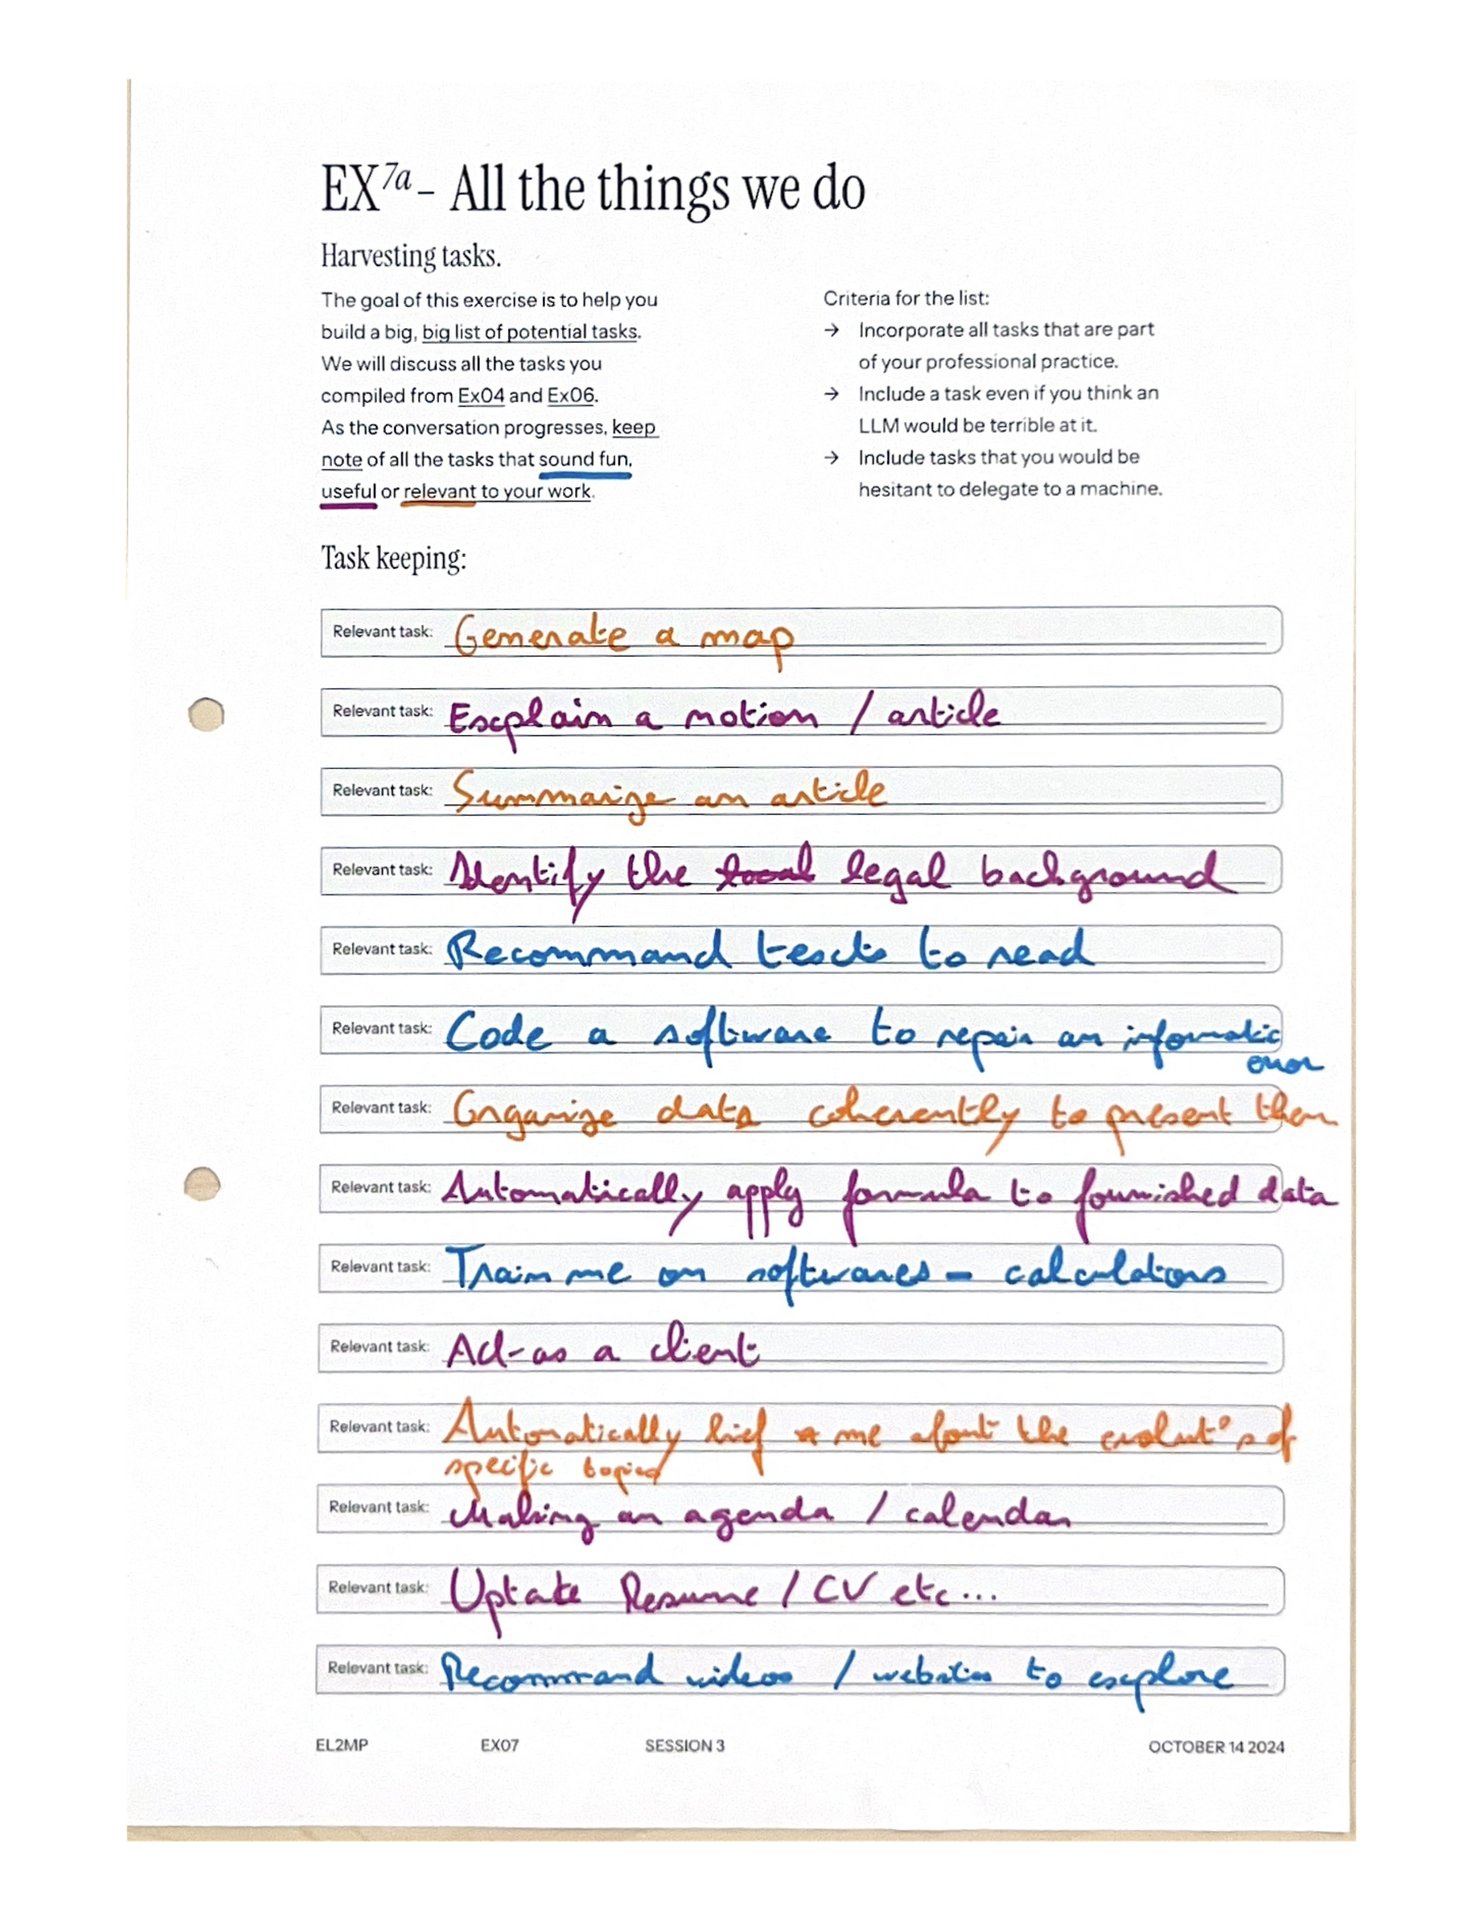 EX7a – All the things we do
Harvesting tasks.
The goal of this exercise is to help you
build a big, big list of potential tasks.
We will discuss all the tasks you
compiled from Ex04 and Ex06.
As the conversation progresses, keep
note of all the tasks that sound fun,
useful or relevant to your work.
Criteria for the list:
→ Incorporate all tasks that are part
of your professional practice.
→ Include a task even if you think an
LLM would be terrible at it.
→ Include tasks that you would be
hesitant to delegate to a machine.
Task keeping:
Relevant task: Generate a map
Relevant task: Explain a notion / article
Relevant task: Summarize an article
Relevant task: Identify the legal background
Relevant task: Recommand texts to read
Relevant task: Code a software to repair an informatic
error
Relevant task: Organize data coherently to present them
Relevant task: Automatically apply formula to fournished data
Relevant task: Train me on softwares – calculators
Relevant task: Act as a client
Relevant task: Automatically brief me about the evolut° of
specific topics
Relevant task: Making an agenda / calendar
Relevant task: Uptate Resume / CV etc...
Relevant task: Recommand videos / websites to explore
EL2MP EX07 SESSION 3 OCTOBER 14 2024